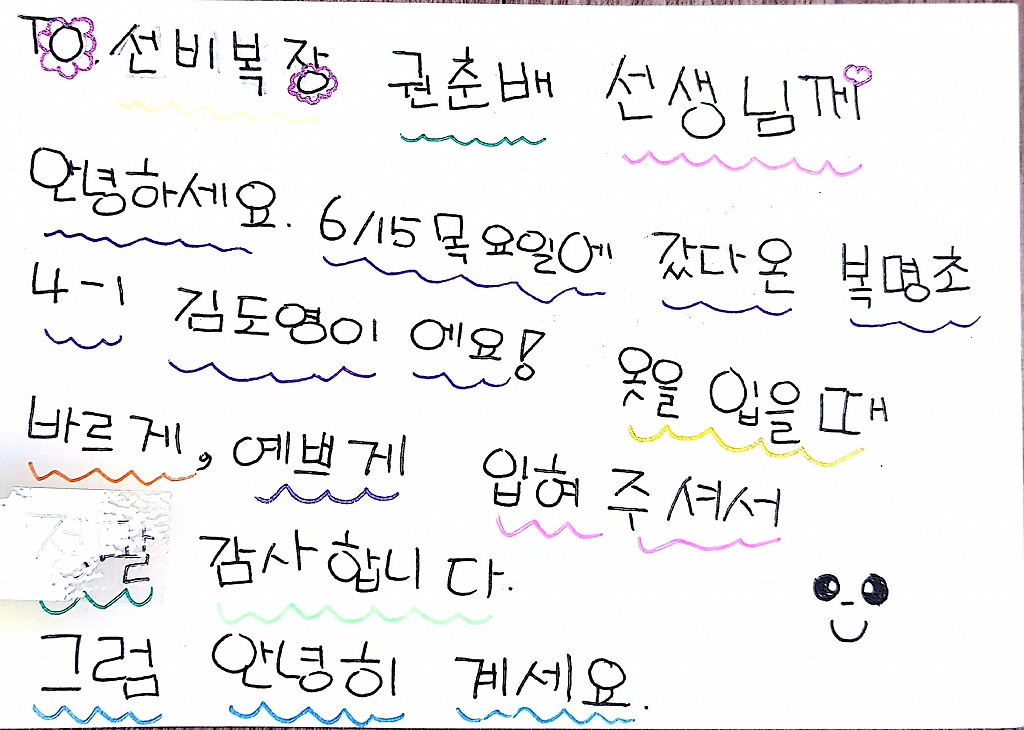 To. 선비복장 권춘배 선생님께
안녕하세요. 6/15 목요일에 갔다온 복명초
4-1 김도영이 에요! 옷을 입을 때
바르게, 예쁘게 입혀 주셔서
감사합니다.
그럼 안녕히 계세요.